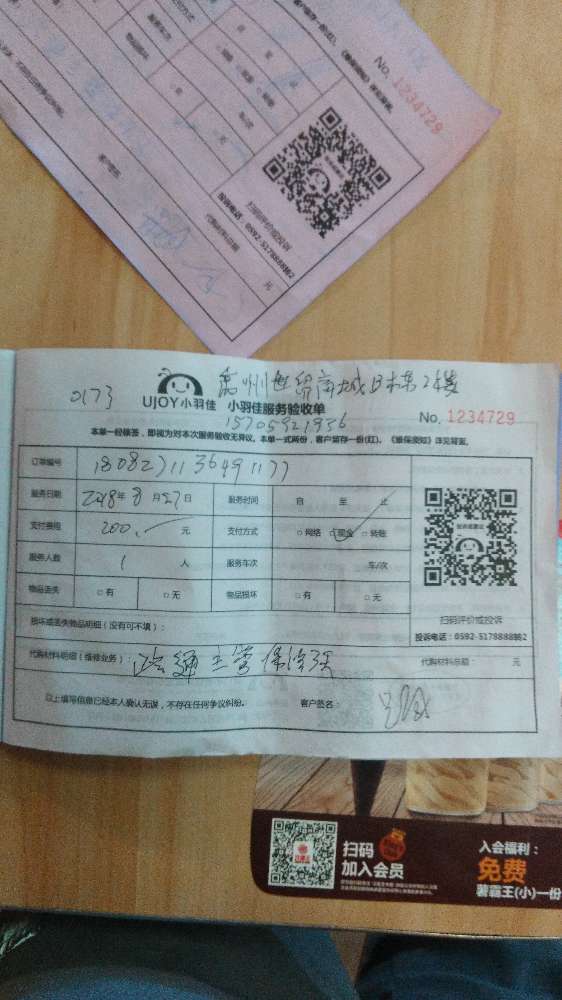 No. 1234729
扫码评价或投诉
投诉电话：0592-5178888转2
代购材料总额
元
客户签名：
0173
禹州世贸商城日本第2楼
UJOY小羽佳 小羽佳服务验收单
15705921936
No. 1234729
本单一经签签，即视为对本次服务验收无异议。本单一式两份，客户留存一份(红)。《维保须知》详见背面。
订单编号 1808271136491177
服务日期 2018年8月27日 服务时间 自 至 止
支付费用 200. 元 支付方式 □网络 □现金 □转账
服务人数 1 人 服务车次 车/次
物品丢失 □有 □无 物品损坏 □有 □无
扫码评价或投诉
投诉电话：0592-5178888转2
损坏或丢失物品明细（没有可不填）：
代购材料明细（维修业务）： 代购材料总额： 元
以上填写信息已经本人确认无误，不存在任何争议纠纷。 客户签名：
扫码
加入会员
入会福利：
免费
薯霸王(小)一份